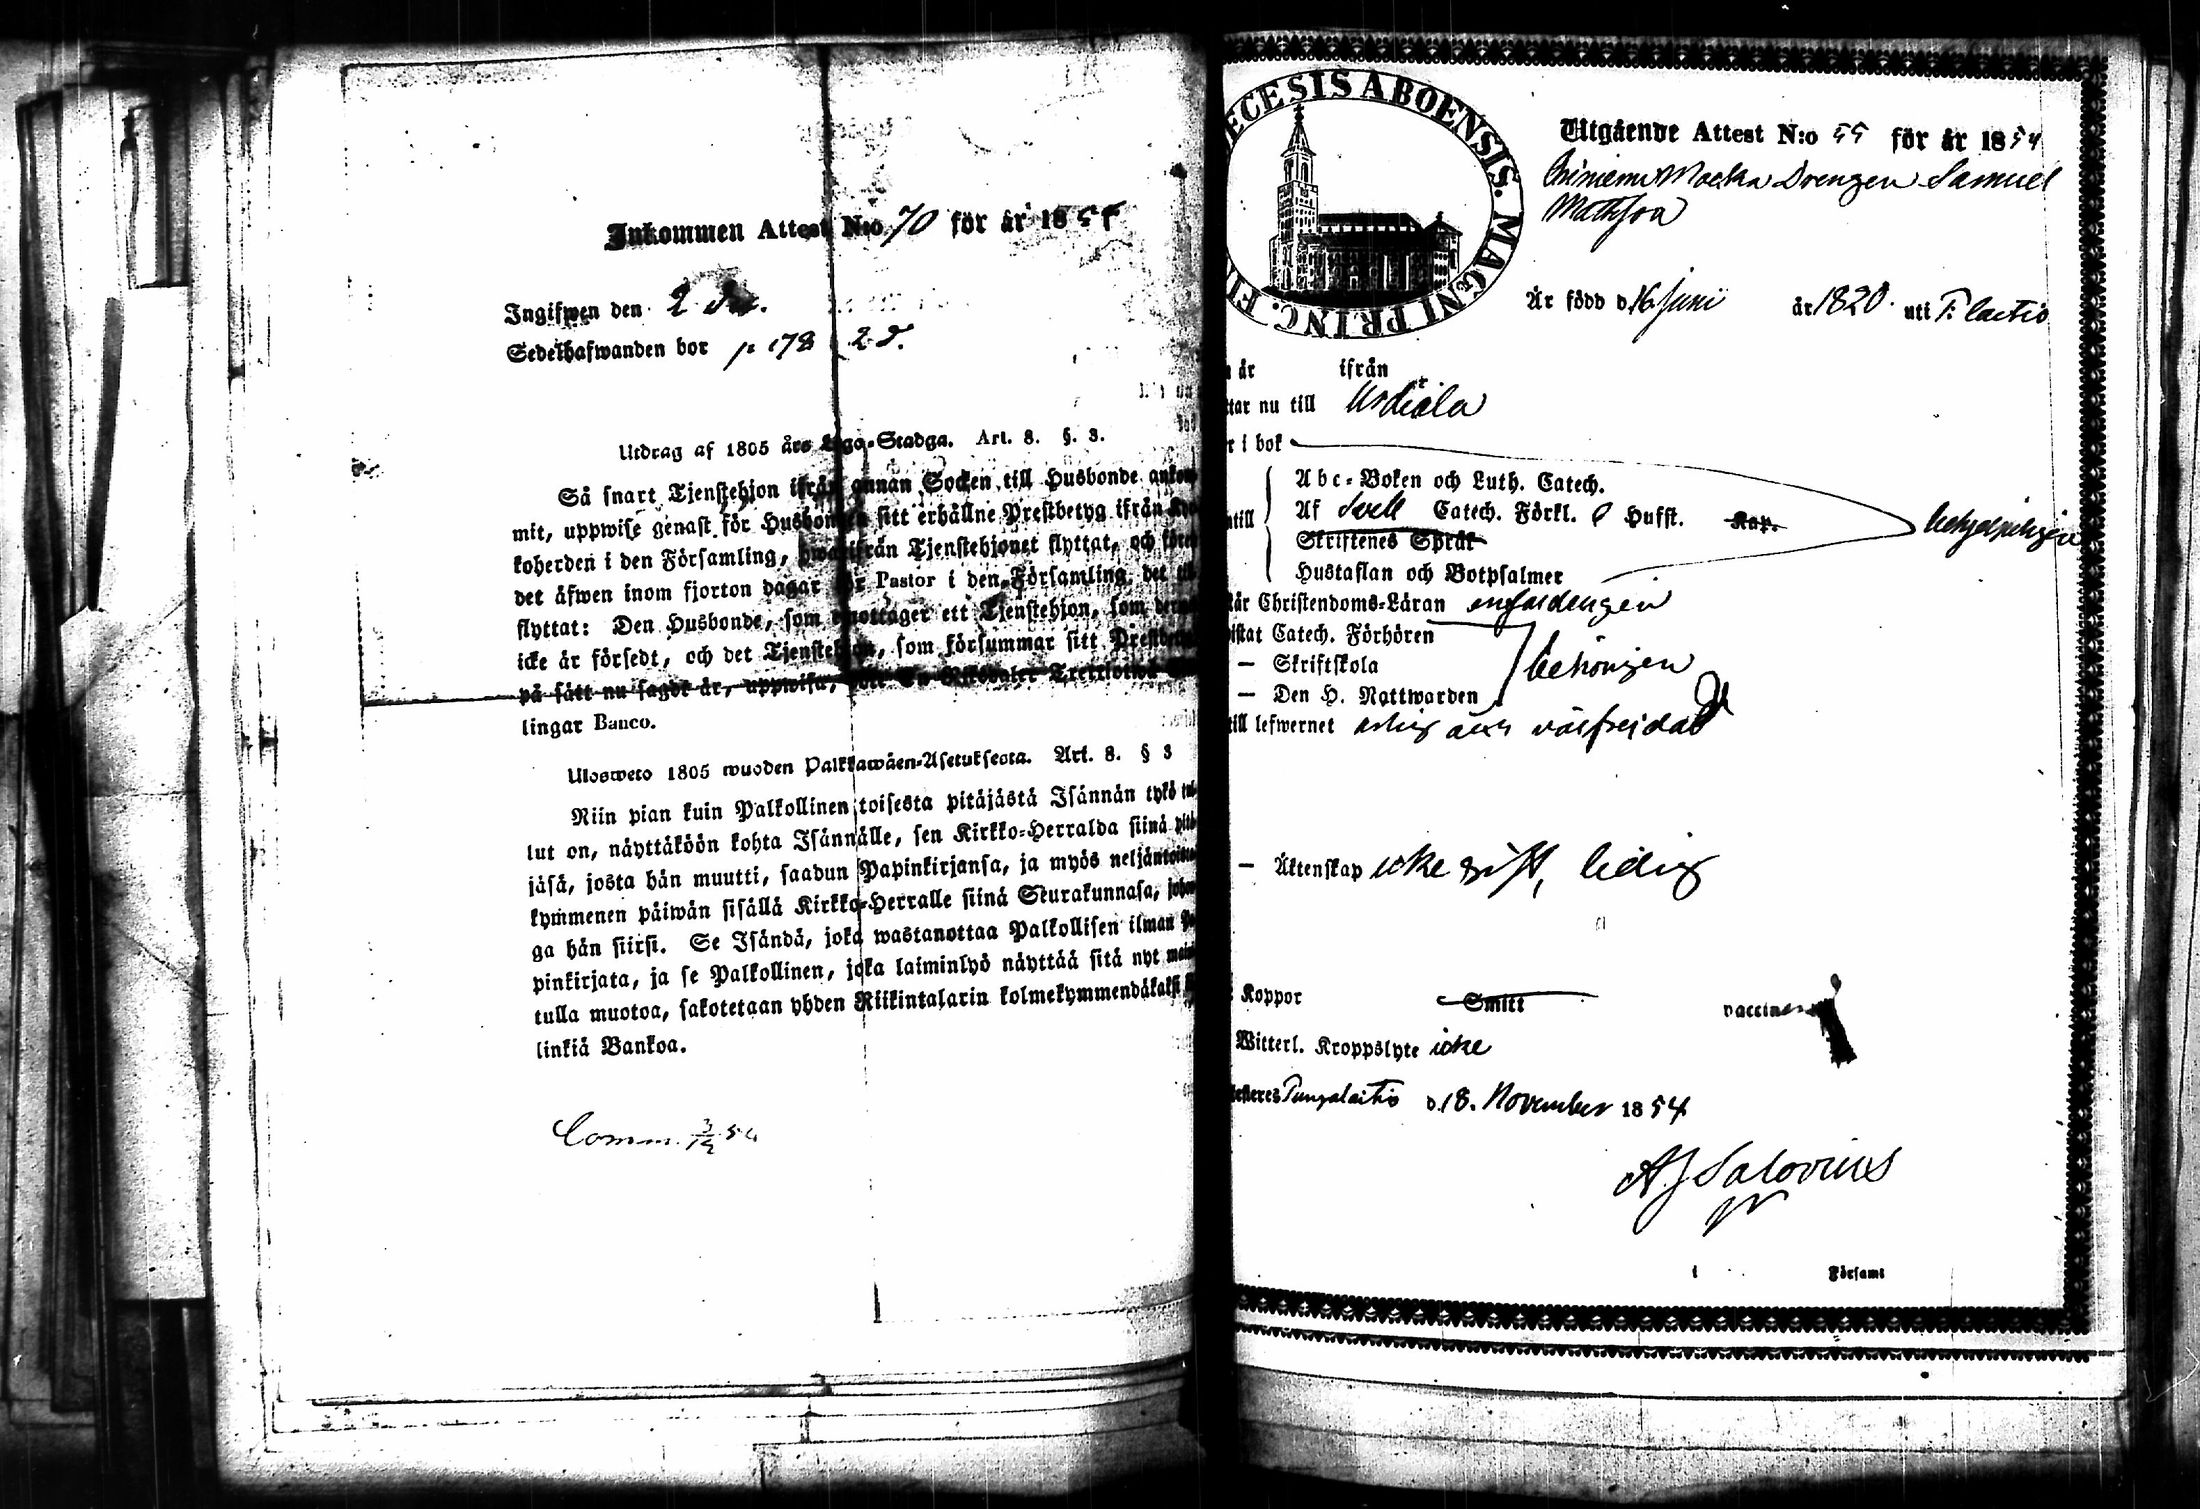 Inkommen Attest N:o 70 för år 185
Ingifwen den 2
Sedelhafwanden bor p 178
Utdrag af 1805 års Lego-Stadga. Art. 8. §. 3.
Så snart Tjenstehjon ifrån annan Socken till Husbonde ankom-
mit, uppwise genast för Husbonden sitt erhållne Prestbetyg ifrån
koherden i den Församling, hwarifrån Tjenstehjonet flyttat, och
det äfwen inom fjorton dagar för Pastor i den Församling det
flyttat: Den Husbonde, som emottager ett Tjenstehjon, som
icke är försedt, och det Tjenstehjon, som försummar sitt
på sätt nu sagdt är, uppwisa, Riksdaler
lingar Banco.
Ulosweto 1805 wuoden Palkkawäen-Asetuksesta. Art. 8. § 3
Niin pian kuin Palkollinen toisesta pitäjästä Isännän tykö
lut on, näyttäköön kohta Isännälle, sen Kirkko-Herralda siinä
jäsä, josta hän muutti, saadun Papinkirjansa, ja myös
kymmenen päiwän sisällä Kirkko-Herralle siinä Seurakunnasa,
ga hän siirsi. Se Isändä, joka wastanottaa Palkollisen ilman
pinkirjata, ja se Palkollinen, joka laiminlyö näyttää sitä nyt
tulla muotoa, sakotetaan yhden Riikintalarin kolmekymmendäkaksi
linkiä Bankoa.
Comm. 3/12 54
ECESIS ABOENSIS. MAGNI PRINC. FI
Utgående Attest N:o 55 för år 1854
Drengen Samuel
Är född d. 16 Juni år 1820. uti P:laitio
är ifrån
tar nu till Urdiala
r i bok
Abc-Boken och Luth. Catech.
Af Svebl Catech. Förkl. Hufst. Kap.
Skriftenes Språk
Hustaflan och Botpsalmer
Christendoms-Läran enfaldeligen
Catech. Förhören
— Skriftskola behörigen
— Den H. Nattwarden
till lefwernet ärlig och välfrejdad
— Äktenskap icke gift, ledig
Koppor Smitt vaccine
Witterl. Kroppslyte icke
Pungalaitio d. 18. November 1854
AJ Salovius
i Församl